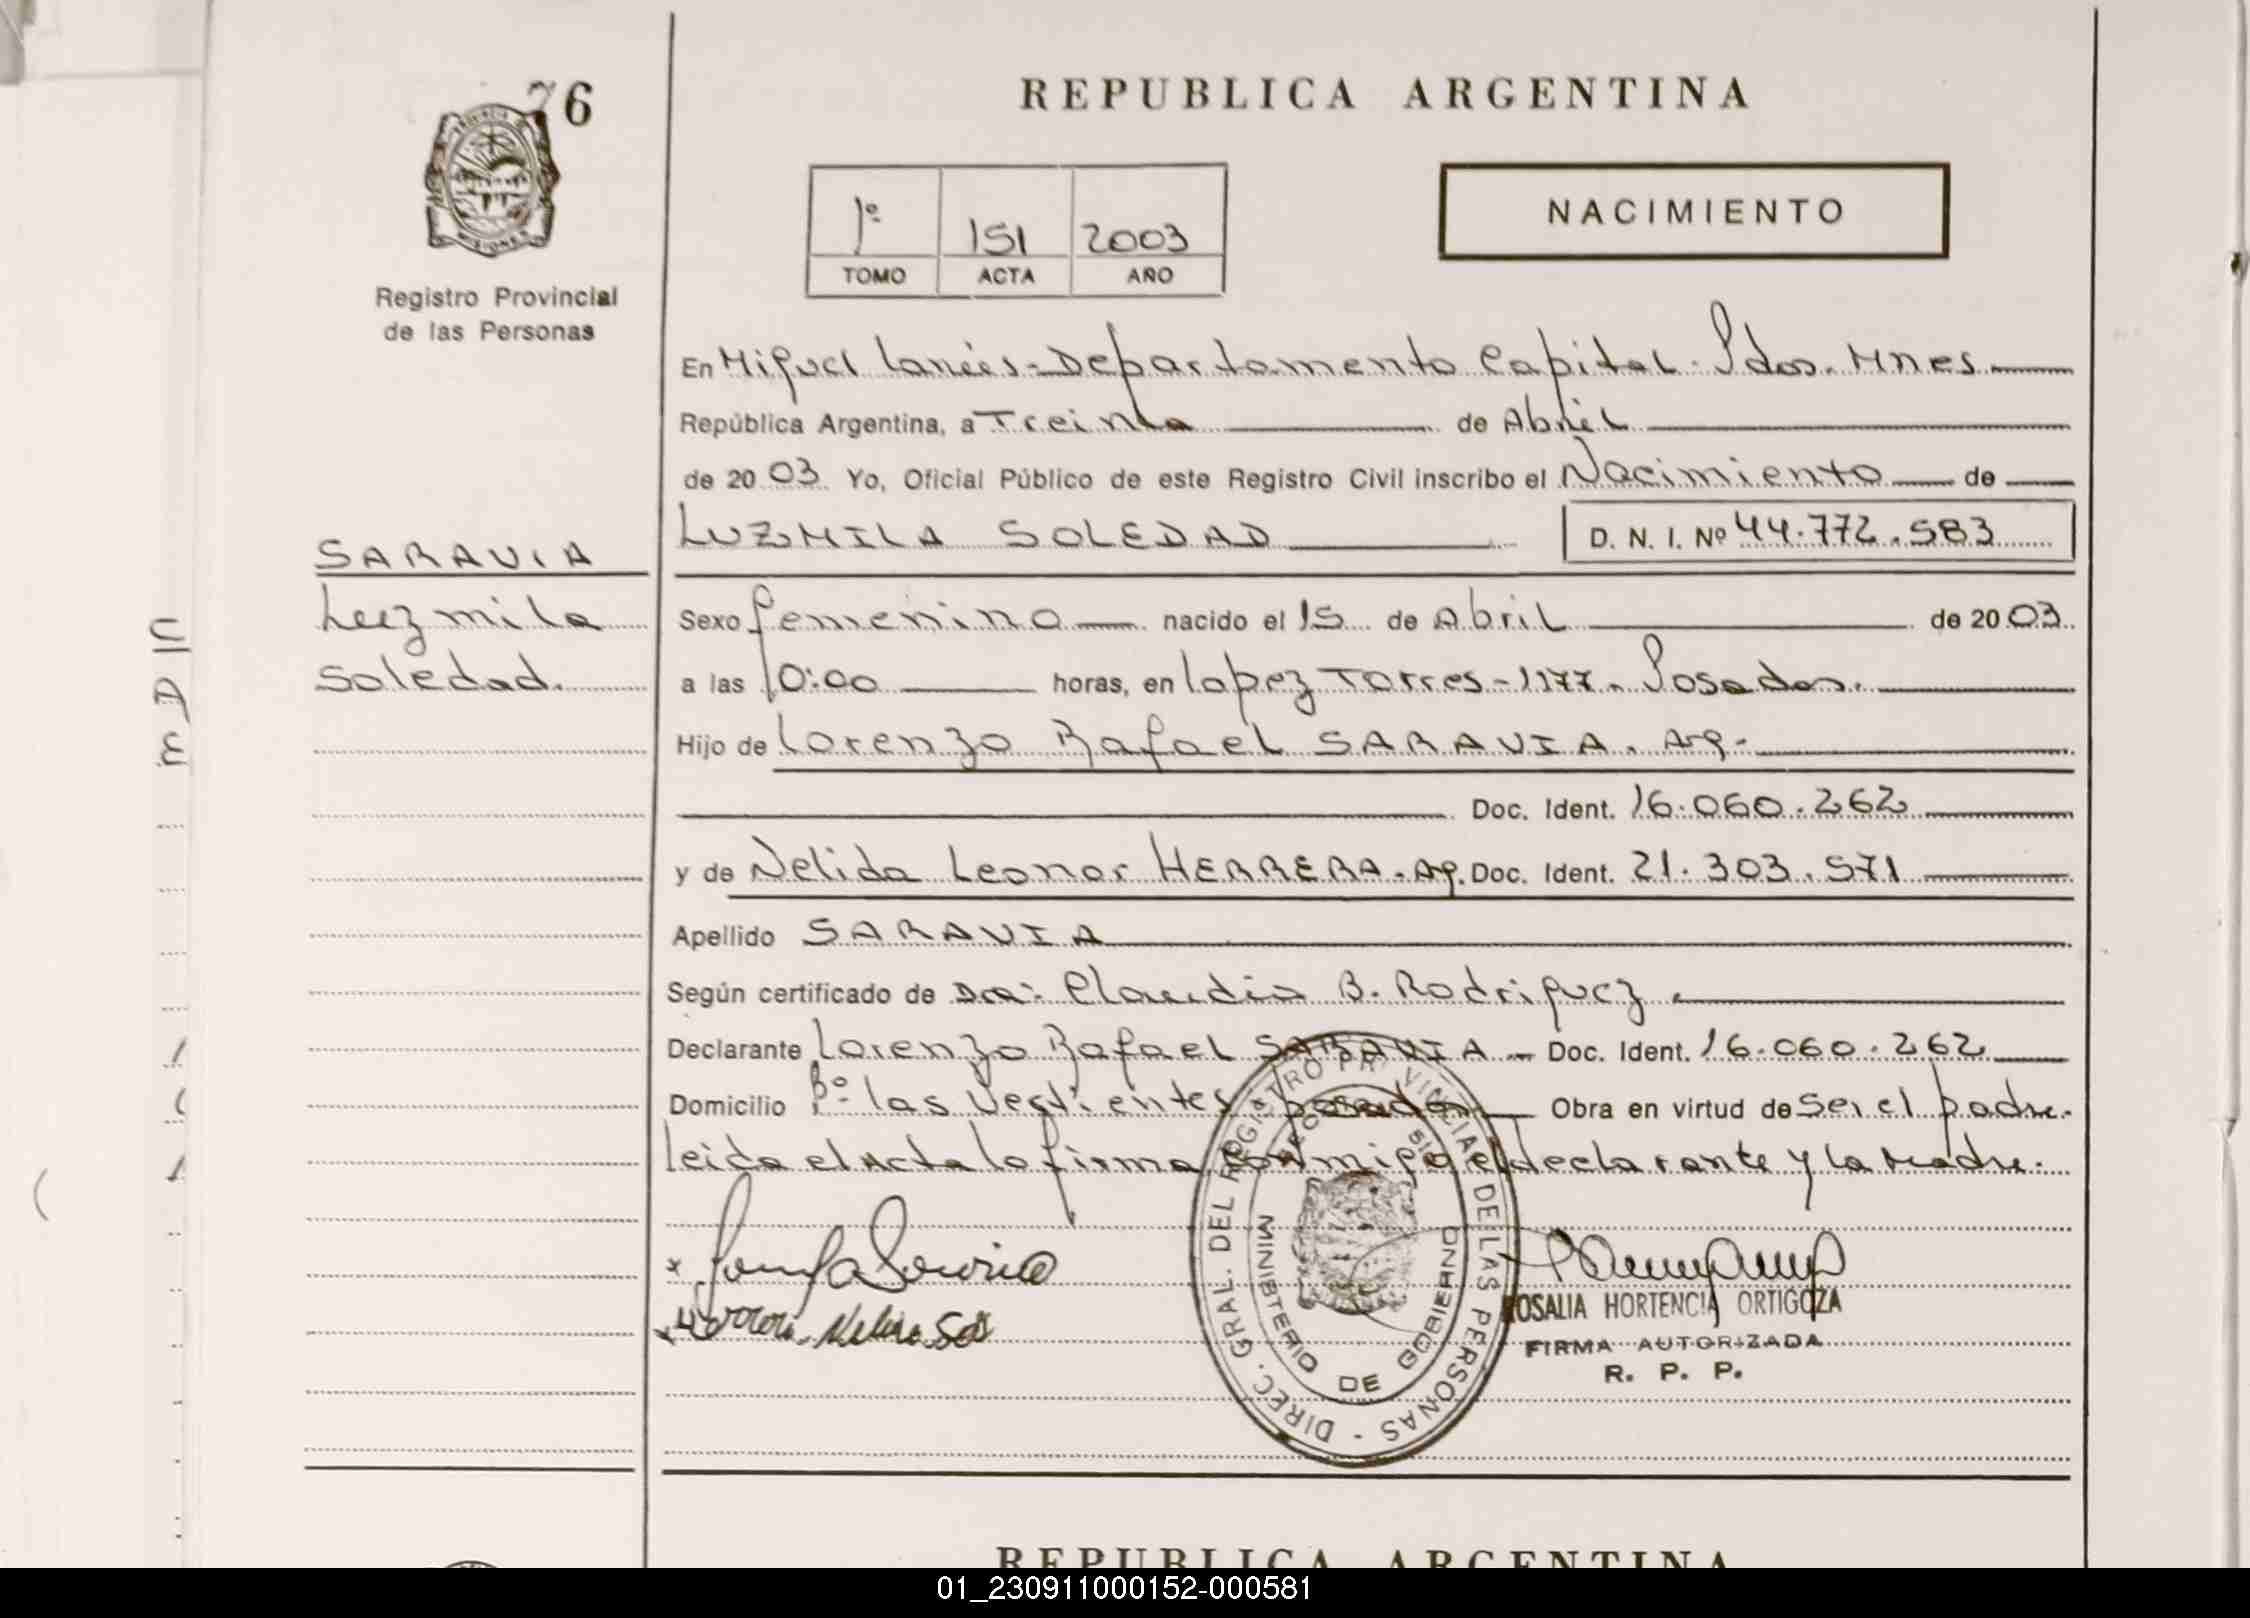 76
REPUBLICA ARGENTINA
1º 151 2003
TOMO ACTA AÑO
NACIMIENTO
Registro Provincial
de las Personas
En Miguel Lanús - Departamento Capital - Pdas. Mnes
República Argentina, a Treinta de Abril
de 2003 Yo, Oficial Público de este Registro Civil inscribo el Nacimiento de
LUZMILA SOLEDAD D. N. I. Nº 44.772.583
SARAVIA
Luzmila
Soledad.
Sexo femenino nacido el 15 de Abril de 2003
a las 10:00 horas, en Lopez Torres - 1177 - Posadas.
Hijo de Lorenzo Rafael SARAVIA. Arg.
Doc. Ident. 16.060.262
y de Nelida Leonor HERRERA. Arg. Doc. Ident. 21.303.571
Apellido SARAVIA
Según certificado de Dra. Claudia B. Rodriguez
Declarante Lorenzo Rafael SARAVIA Doc. Ident. 16.060.262
Domicilio Bº las Vertientes - Posadas Obra en virtud de ser el padre.
leida el Acta la firma conmigo el declarante y la Madre.
DIREC. GRAL. DEL REGISTRO PROVINCIAL DE LAS PERSONAS
MINISTERIO DE GOBIERNO
ROSALIA HORTENCIA ORTIGOZA
FIRMA AUTORIZADA
R. P. P.
REPUBLICA ARGENTINA
01_230911000152-000581